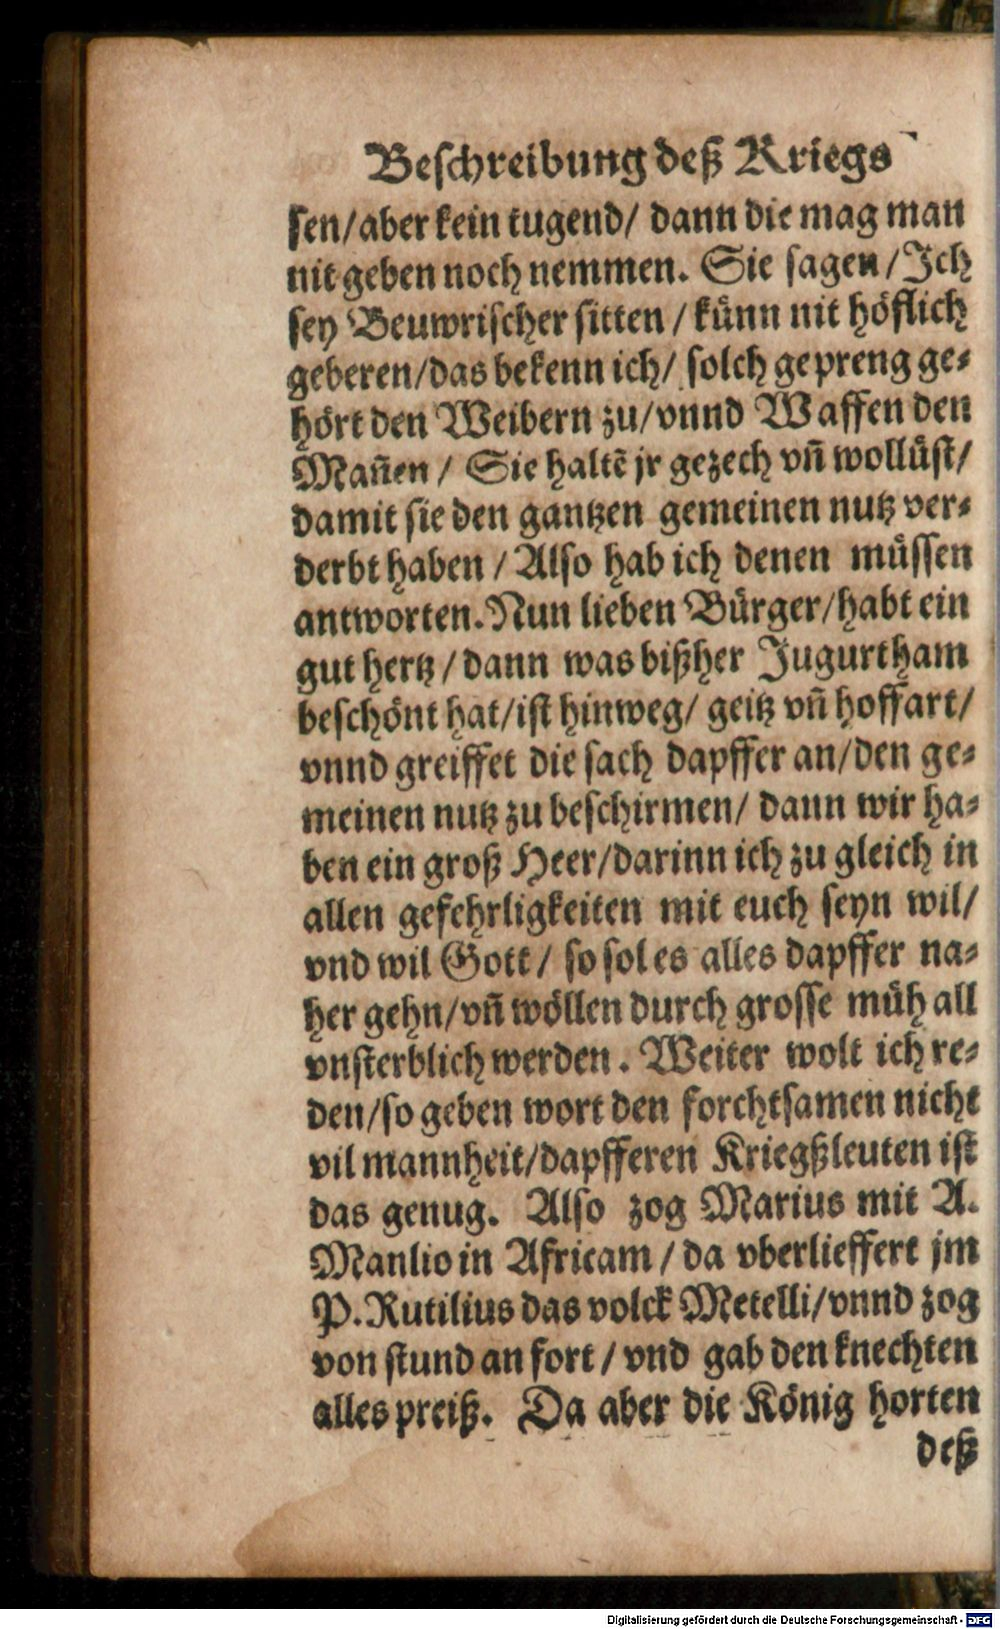 Beschreibung deß Kriegs
sen/aber kein tugend/ dann die mag man
nit geben noch nemmen. Sie sagen/Ich
sey Beuwrischer sitten / künn nit höflich
geberen/das bekenn ich/ solch gepreng ge-
hört den Weibern zu/vnnd Waffen den
Mañen / Sie haltẽ jr gezech vñ wollüst/
damit sie den gantzen gemeinen nutz ver-
derbt haben / Also hab ich denen müssen
antworten. Nun lieben Bürger/habt ein
gut hertz/dann was bißher Jugurtham
beschönt hat/ist hinweg/ geitz vñ hoffart/
vnnd greiffet die sach dapffer an/den ge-
meinen nutz zu beschirmen/ dann wir ha-
ben ein groß Heer/darinn ich zu gleich in
allen gefehrligkeiten mit euch seyn wil/
vnd wil Gott/ so sol es alles dapffer na-
her gehn/vñ wöllen durch grosse müh all
vnsterblich werden. Weiter wolt ich re-
den/so geben wort den forchtsamen nicht
vil mannheit/dapfferen Kriegßleuten ist
das genug. Also zog Marius mit A.
Manlio in Africam / da vberlieffert jm
P. Rutilius das volck Metelli/vnnd zog
von stund an fort / vnd gab den knechten
alles preiß. Da aber die König horten
deß
Digitalisierung gefördert durch die Deutsche Forschungsgemeinschaft - DFG